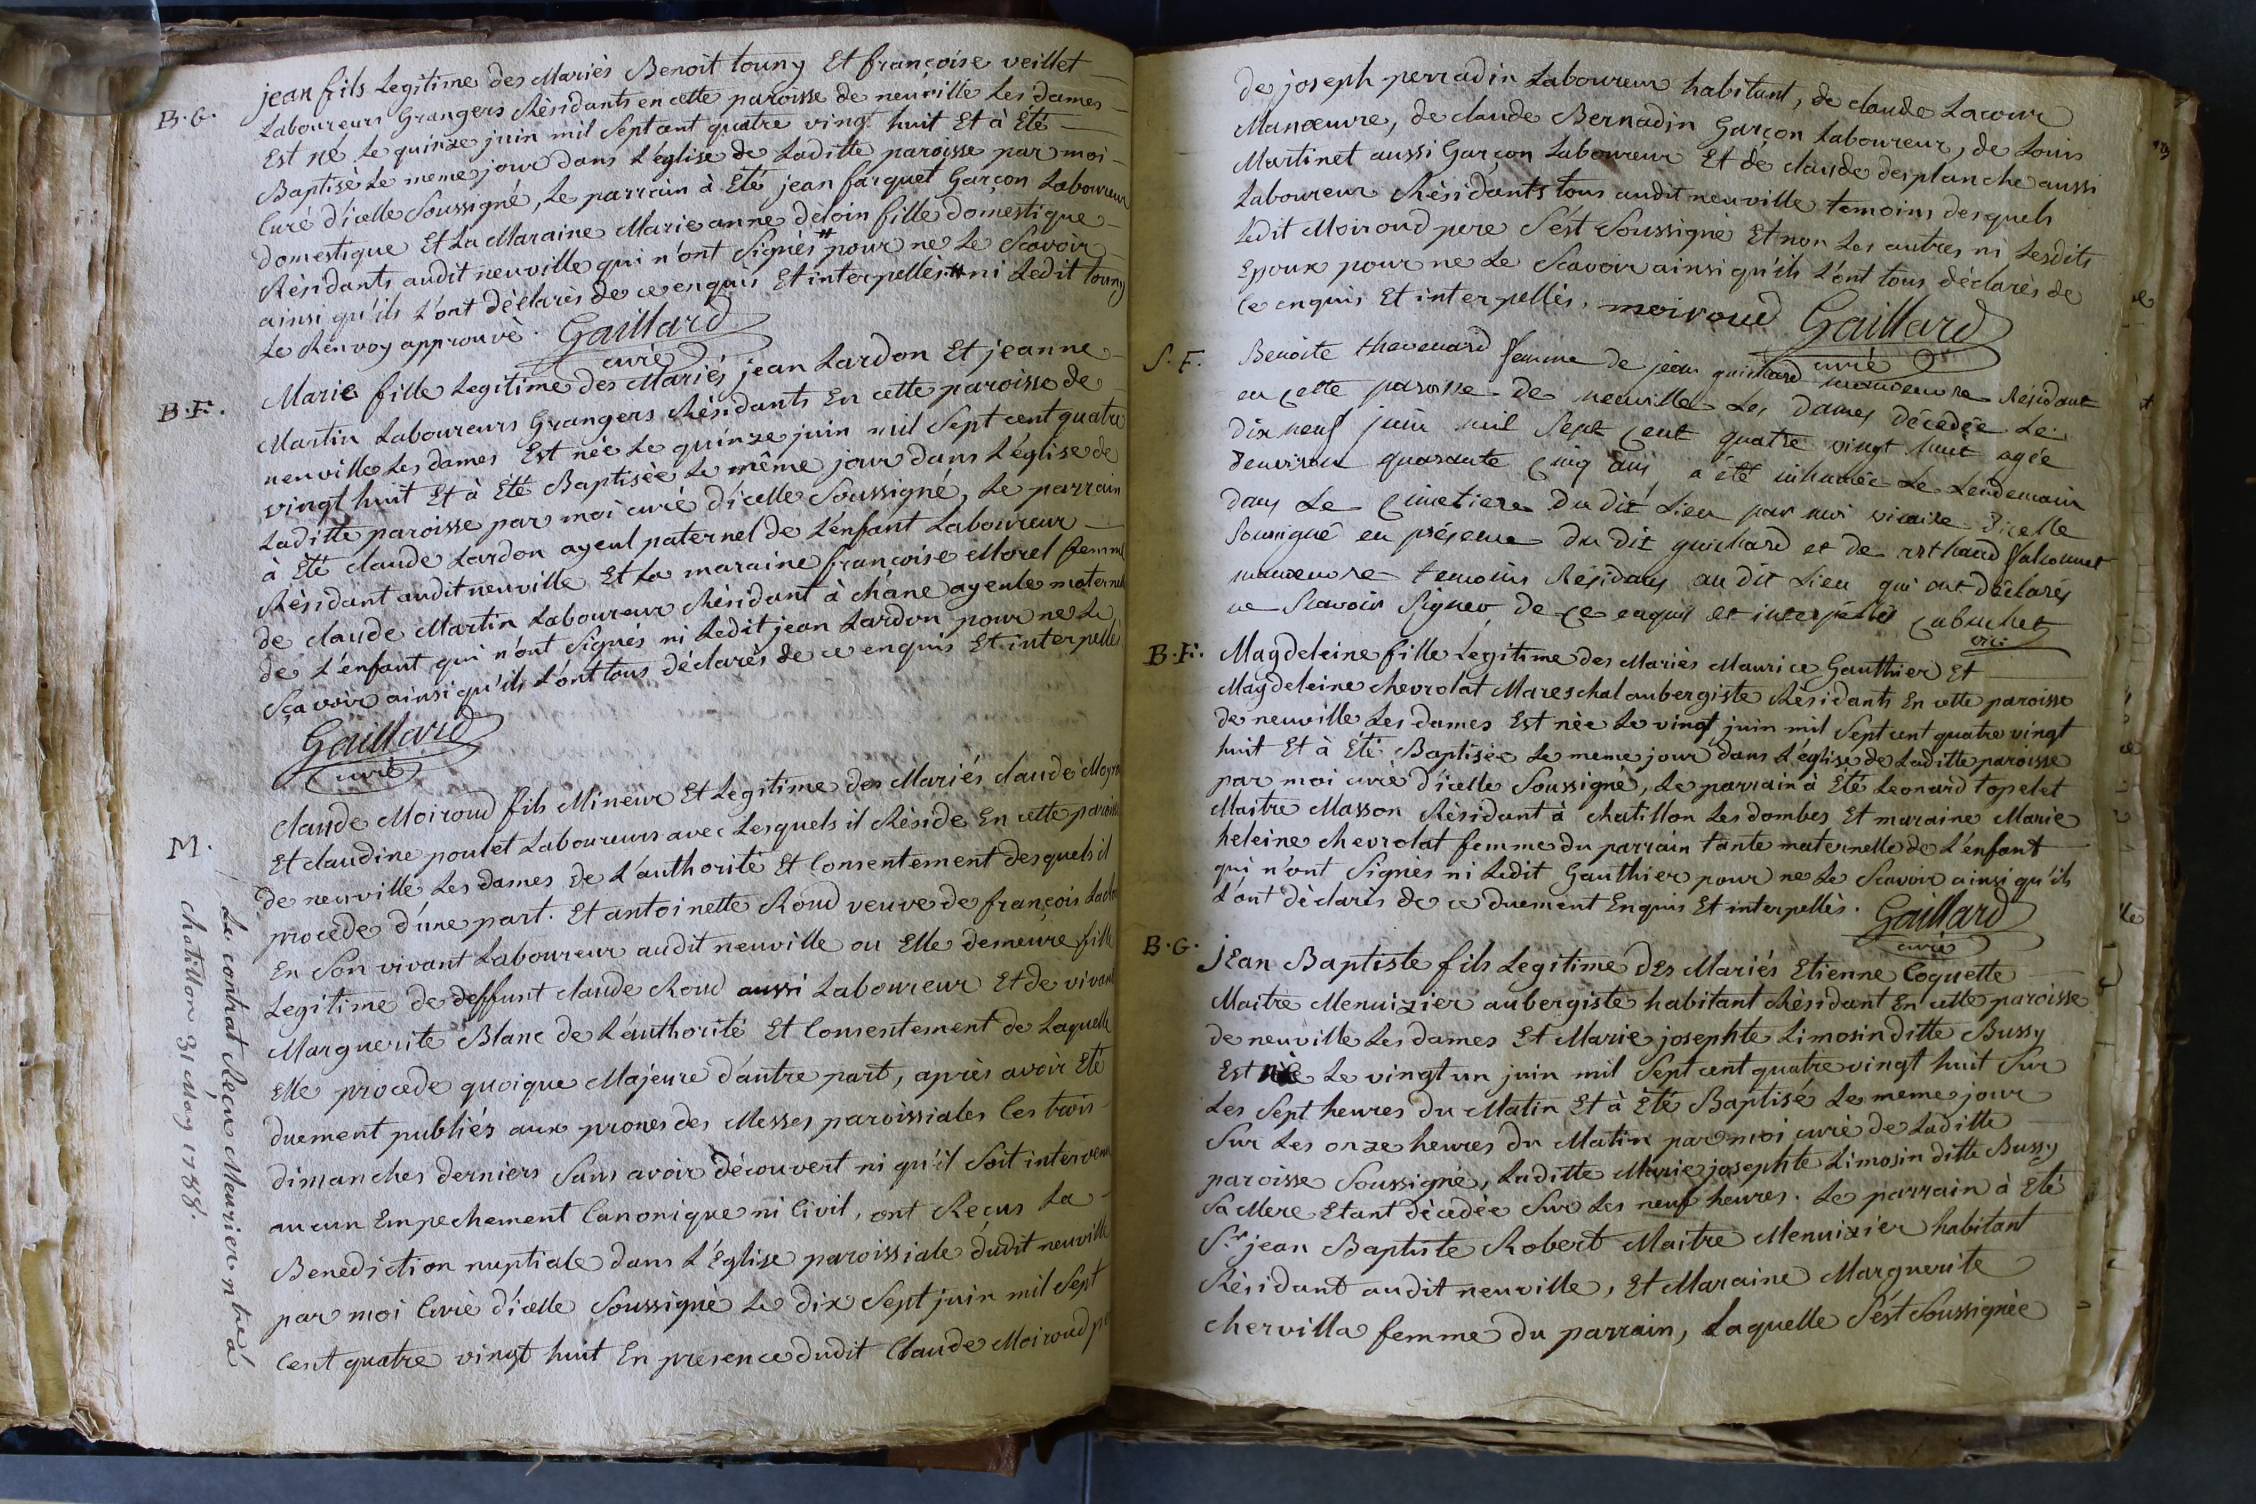 B.G.
jean fils Legitime des Mariés Benoit touny Et françoise veillet
Laboureurs Grangers Résidants en cette paroisse de neuville Les dames
Est né Le quinze juin mil Sept cent quatre vingt huit Et à Eté
Baptisé Le meme jour dans L'église de Laditte paroisse par moi
Curé d'icelle Soussigné, Le parrain à Eté jean farquet Garçon Laboureur
domestique Et La Maraine Marie anne deloin fille domestique
Résidants audit neuville qui n'ont Signés # pour ne Le Scavoir
ainsi qu'ils L'ont déclarés de ce enquis Et interpellés # ni Ledit touny
Le Renvoy approuvé. Gaillard
curé
B.F.
Marie fille Legitime des Mariés jean Lardon Et jeanne
Martin Laboureurs Grangers Résidants En cette paroisse de
neuville Les dames Est née Le quinze juin mil Sept cent quatre
vingt huit Et à Eté Baptisée Le même jour dans L'église de
Laditte paroisse par moi curé d'icelle Soussigné, Le parrain
à Eté claude Lardon ayeul paternel de L'enfant Laboureur
Résidant audit neuville Et La maraine françoise Morel femme
de claude Martin Laboureur Résidant à chane ayeule maternelle
de L'enfant qui n'ont Signés ni Ledit jean Lardon pour ne Le
Sçavoir ainsi qu'ils L'ont tous déclarés de ce enquis Et interpellé
Gaillard
curé
M.
Le contrat Reçu Meunier ntre à
chatillon 31 May 1788.
Claude Moiroud fils Mineur Et Legitime des Mariés claude
Et claudine poulet Laboureurs avec Lesquels il Réside En cette paroisse
de neuville Les dames de L'authorité Et Consentement desquels il
procéde d'une part. Et antoinette Roud veuve de françois
En Son vivant Laboureur audit neuville ou Elle demeure fille
Legitime de deffunt claude Roud aussi Laboureur Et de vivant
Marguerite Blanc de L'authorité Et Consentement de Laquelle
Elle procede quoique Majeure d'autre part, après avoir Eté
duement publiés aux prones des Messes paroissiales les trois
dimanches derniers Sans avoir découvert ni qu'il Soit intervenu
aucun Empechement Canonique ni Civil, ont Reçus La
Benediction nuptiale dans L'Eglise paroissiale dudit neuville
par moi Curé d'icelle Soussigné Le dix Sept juin mil Sept
Cent quatre vingt huit En presence dudit Claude Moiroud
de joseph perradin Laboureur habitant, de claude Lacour
Manœuvre, de claude Bernadin Garçon Laboureur, de Louis
Martinet aussi Garçon Laboureur Et de claude desplanche aussi
Laboureur Résidants tous audit neuville temoins desquels
Ledit Moiroud pere S'est Soussigné Et non Les autres ni Lesdits
Epoux pour ne Le Scavoir ainsi qu'ils L'ont tous déclarés de
Ce enquis Et interpellés. moiroud Gaillard
curé
S.F.
Benoite thevenard femme de jean guichard manoeuvre Résidant
en cette paroisse de neuville Les Dames décedée Le
Dix neuf juin mil Sept Cent quatre vingt huit agée
Denviron quarante Cinq ans a été inhumée Le Lendemain
dans Le Cimetiere Du dit Lieu par moi vicaire Dicelle
Soussigné en présence du dit guichard et de falconnet
manoeuvre temoins Résidans au dit Lieu qui ont Déclarés
ne Scavoir Signer de ce enquis et interpellés Cabuchet
vic:
B.F.
Magdeleine fille Légitime des Mariés Maurice Gauthier Et
Magdeleine chevrolat Mareschal aubergiste Résidants En cette paroisse
de neuville Les dames Est née Le vingt juin mil Sept cent quatre vingt
huit Et à Eté Baptisée Le meme jour dans L'église de Laditte paroisse
par moi curé d'icelle Soussigné, Le parrain à Eté Leonard topelet
Maitre Masson Résidant à chatillon Les dombes Et maraine Marie
heleine chevrolat femme du parrain tante maternelle de L'enfant
qui n'ont Signés ni Ledit Gauthier pour ne Le Scavoir ainsi qu'ils
L'ont déclarés de ce duement Enquis Et interpellés. Gaillard
curé
B.G.
jEan Baptiste fils Legitime dEs Mariés Etienne Coquette
Maitre Menuizier aubergiste habitant Résidant En cette paroisse
de neuville Les dames Et Marie josephte Limosin ditte Bussy
Est né Le vingt un juin mil Sept cent quatre vingt huit Sur
Les Sept heures du Matin Et à Eté Baptisé Le meme jour
Sur Les onze heures du Matin par moi curé de Laditte
paroisse Soussigné, Laditte Marie josephte Limosin ditte Bussy
Sa Mere Etant décedée Sur Les neuf heures. Le parrain à Eté
S.r jean Baptiste Robert Maitre Menuizier habitant
Résidant audit neuville, Et Maraine Marguerite
chervilla femme du parrain, Laquelle S'est Soussignée